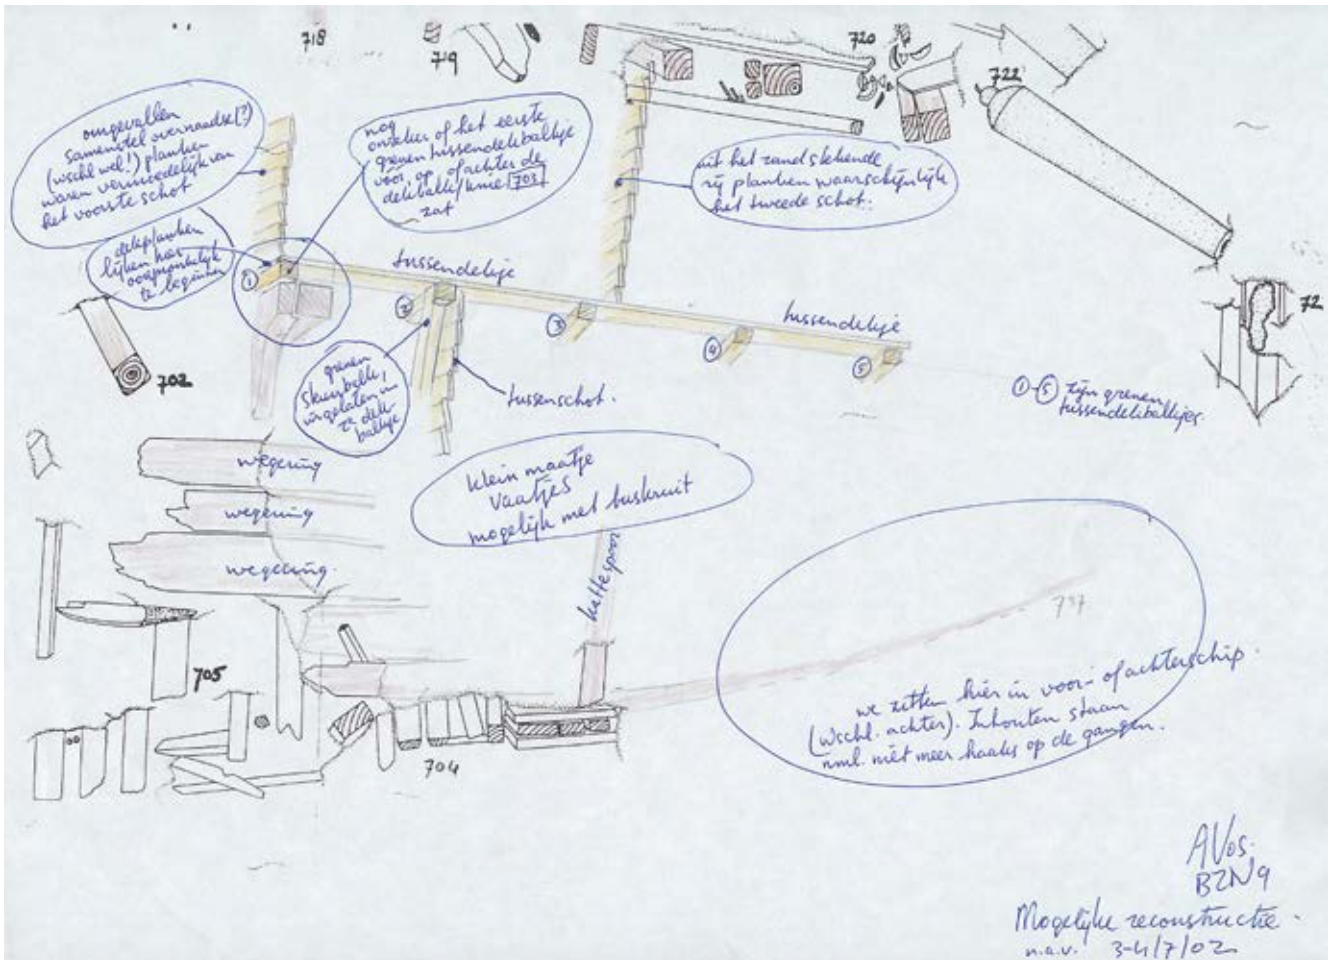 718
719
720
722
omgevallen
samenstel overnaadse (?)
(wschl wel!) planken
waren vermoedelijk van
het voorste schot
nog
onzeker of het eerste
grenen tussendekbalkje
vóór, op of achter de
dekbalk/knie 703
zat
uit het zand stekende
rij planken waarschijnlijk
het tweede schot.
dekplanken
lijken hier
oorspronkelijk
te beginnen
tussendekje
tussendekje
1
2
3
4
5
702
72
grenen
steunbalk,
ingelaten in
2e dek-
balkje
tussenschot.
1-5 zijn grenen
tussendekbalkjes.
wegering
wegering
wegering.
klein maatje
vaatjes
mogelijk met buskruit
kattespoor
737
705
704
we zitten hier in voor- of achterschip.
(wschl. achter). Inhouten staan
nml. niet meer haaks op de gangen.
AVos.
BZN9
Mogelijke reconstructie.
n.a.v. 3-4/7/02